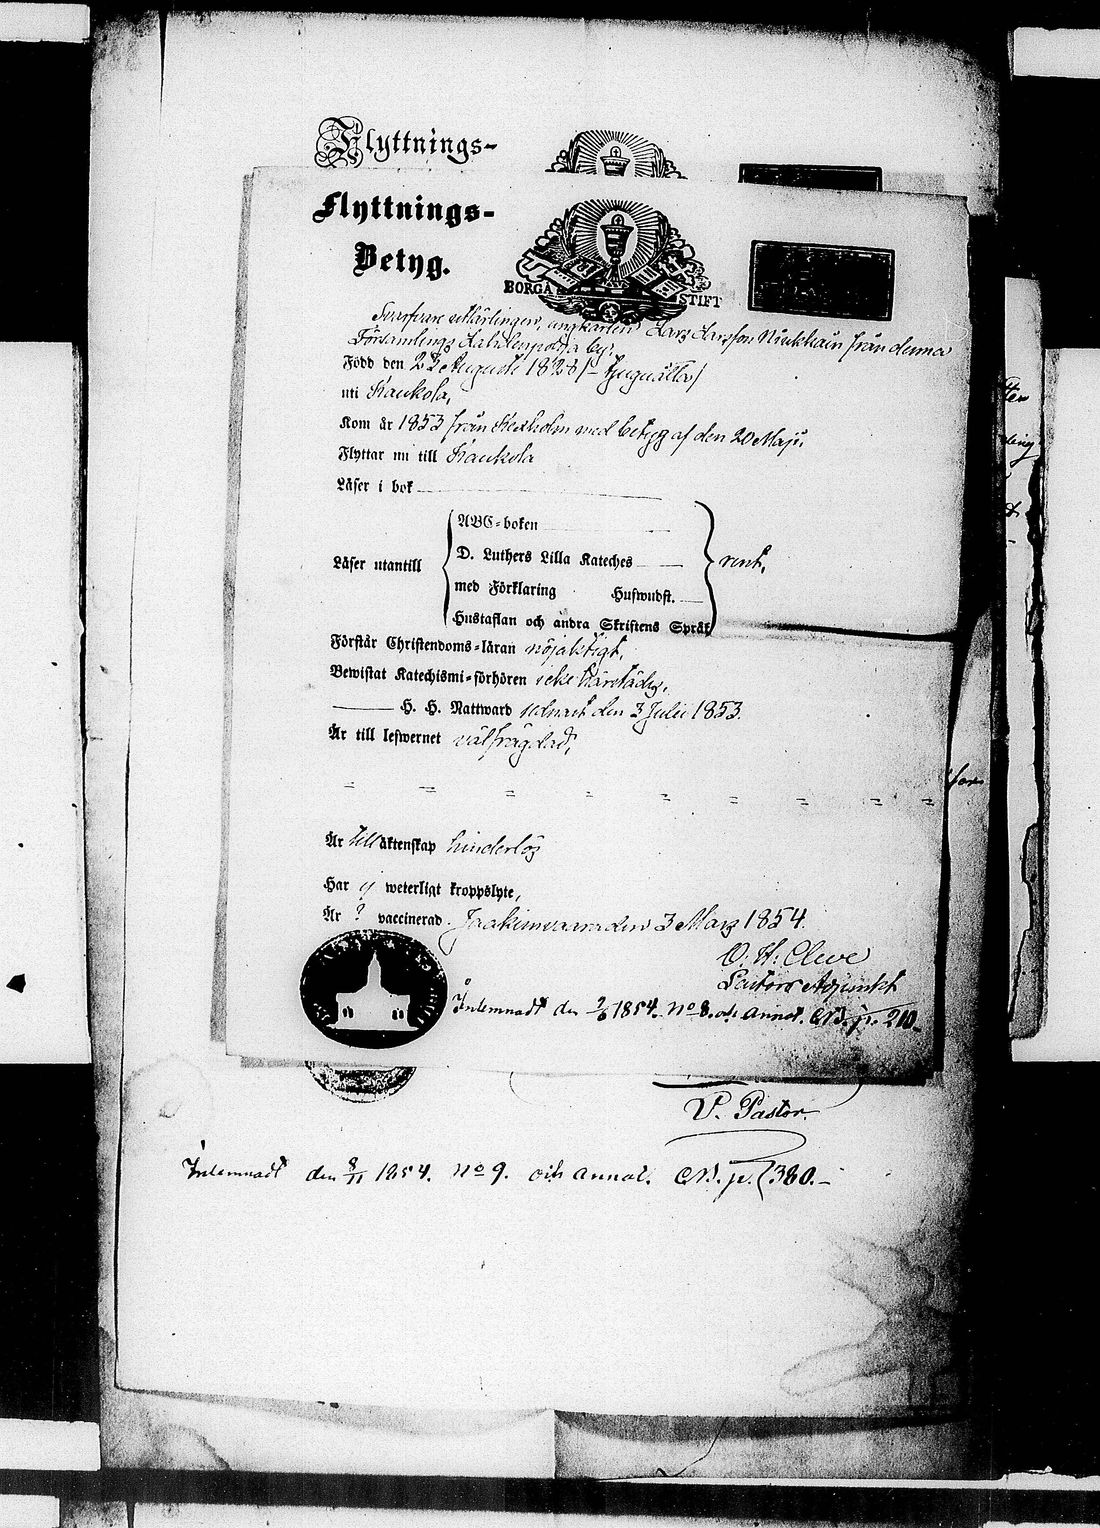 Flyttnings-
Flyttnings-
Betyg.
BORGÅ STIFT
Svarfvare Lärlingen, ungkarlen Lars Larsson Niukkain från denna
Församlings by,
Född den 23 Augusti 1828 /- tjuguåtta/
uti Kaukola,
Kom år 1853 från Kexholm med betyg af den 20 Maji,
Flyttar nu till Kaukola
Läser i bok
ABC-boken
D. Luthers Lilla Kateches
Läser utantill
rent,
med Förklaring Hufwudst.
Hustaflan och andra Skriftens Språk
Förstår Christendoms-läran nöjaktigt,
Bewistat Katechismi-förhören icke härstädes,
H. H. Nattward sednast den 3 Julii 1853.
Är till lefwernet välfrägdad,
Är till äktenskap hinderlös
Har ej weterligt kroppslyte,
Är ? vaccinerad. Jaakimvaara den 3 Mars 1854.
O. H. Cleve
Pastors Adjunkt
Inlemnadt den 9/6 1854. No 8. och annot. CB. p. 210.
V. Pastor.
Inlemnadt den 8/11 1854. No 9. och annot. CB. p. 380.-